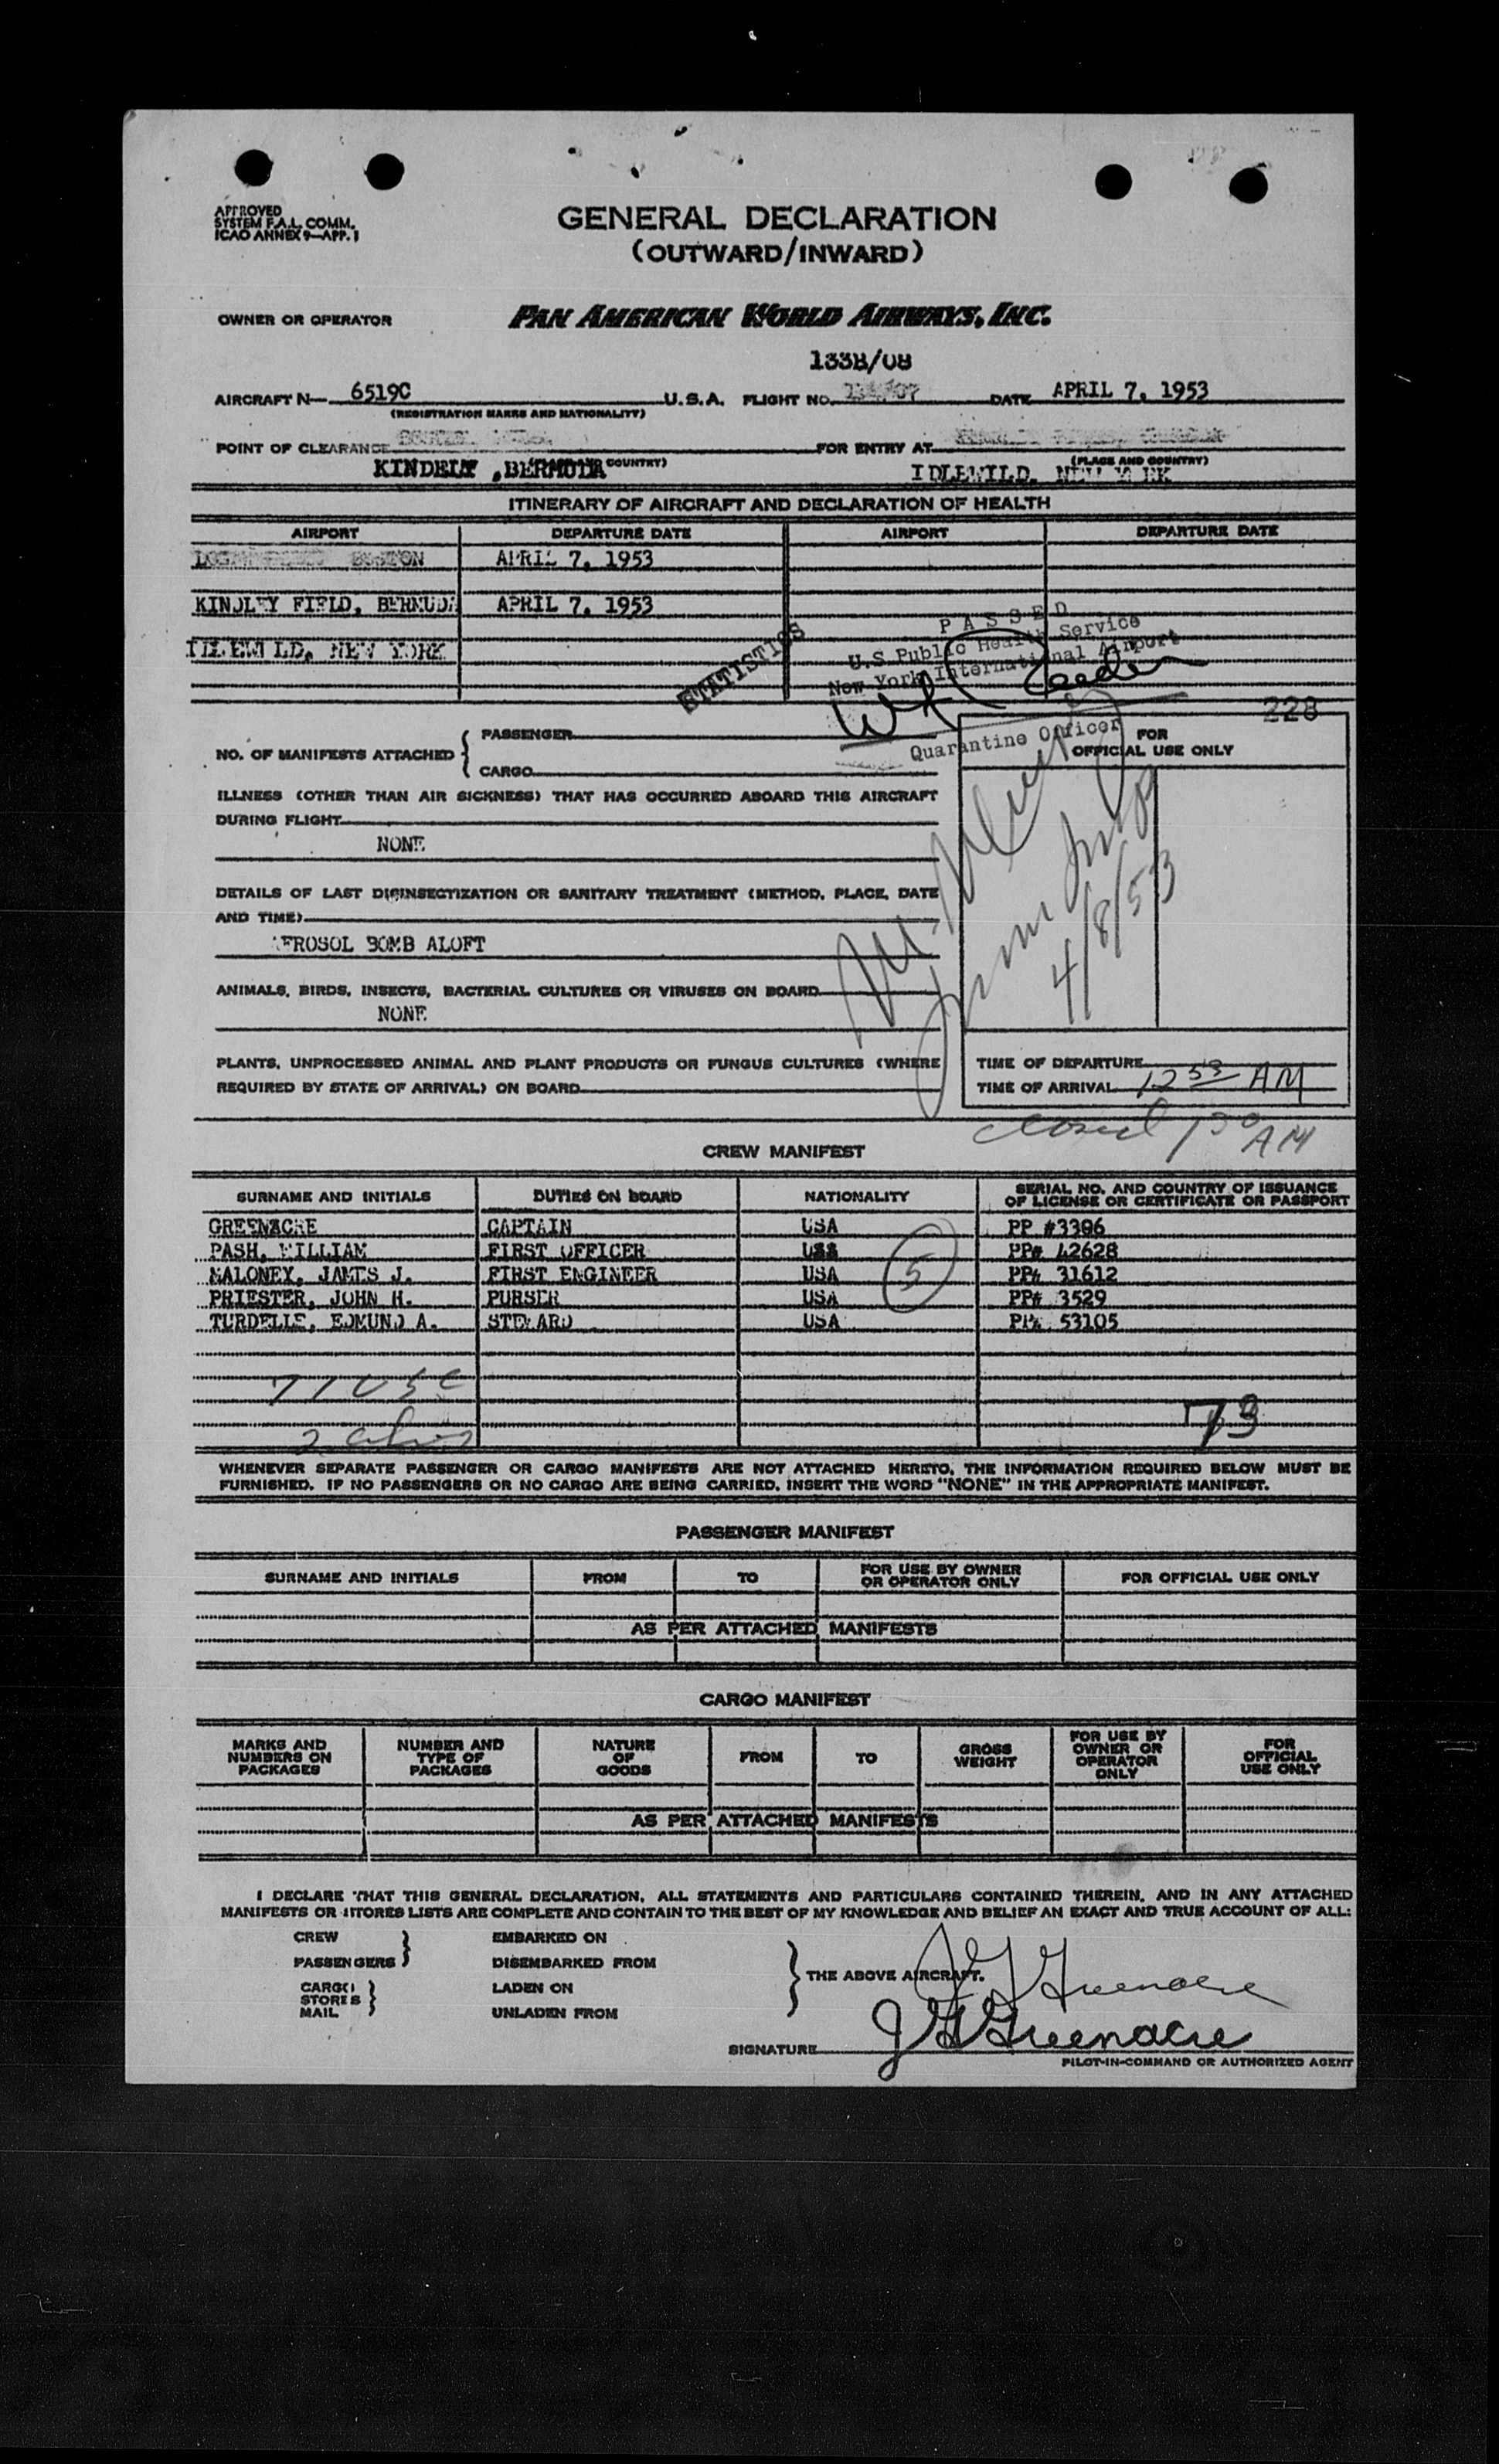 APPROVED
SYSTEM F.A.L. COMM.
ICAO ANNEX 9—APP. 1
GENERAL DECLARATION
(OUTWARD/INWARD)
OWNER OR OPERATOR PAN AMERICAN WORLD AIRWAYS, INC.
133B/08
AIRCRAFT N— 6519C U.S.A. FLIGHT NO. DATE APRIL 7, 1953
(REGISTRATION MARKS AND NATIONALITY)
POINT OF CLEARANCE FOR ENTRY AT
KINDELY ,BERMUDA COUNTRY) (PLACE AND COUNTRY)
IDLEWILD, NEW
ITINERARY OF AIRCRAFT AND DECLARATION OF HEALTH
AIRPORT DEPARTURE DATE AIRPORT DEPARTURE DATE
BOSTON APRIL 7, 1953
KINDLEY FIELD, BERMUDA APRIL 7, 1953
IDLEWILD, NEW YORK
STATISTICS
PASSED
U.S Public Health Service
New York International Airport
Quarantine Officer
228
NO. OF MANIFESTS ATTACHED { PASSENGER
CARGO
FOR
OFFICIAL USE ONLY
ILLNESS (OTHER THAN AIR SICKNESS) THAT HAS OCCURRED ABOARD THIS AIRCRAFT
DURING FLIGHT
NONE
DETAILS OF LAST DISINSECTIZATION OR SANITARY TREATMENT (METHOD, PLACE, DATE
AND TIME)
AEROSOL BOMB ALOFT
4/8/53
ANIMALS, BIRDS, INSECTS, BACTERIAL CULTURES OR VIRUSES ON BOARD
NONE
PLANTS, UNPROCESSED ANIMAL AND PLANT PRODUCTS OR FUNGUS CULTURES (WHERE
REQUIRED BY STATE OF ARRIVAL) ON BOARD
TIME OF DEPARTURE
TIME OF ARRIVAL 12 53 AM
closed 1 30 AM
CREW MANIFEST
SURNAME AND INITIALS DUTIES ON BOARD NATIONALITY SERIAL NO. AND COUNTRY OF ISSUANCE
OF LICENSE OR CERTIFICATE OR PASSPORT
GREENACRE CAPTAIN USA PP #3306
PASH, WILLIAM FIRST OFFICER USA PP# 42628
MALONEY, JAMES J. FIRST ENGINEER USA PP# 31612
PRIESTER, JOHN H. PURSER USA PP# 3529
TURDELLE, EDMUND A. STEWARD USA PP# 53105
5
71 USC
2 aliens
73
WHENEVER SEPARATE PASSENGER OR CARGO MANIFESTS ARE NOT ATTACHED HERETO, THE INFORMATION REQUIRED BELOW MUST BE
FURNISHED. IF NO PASSENGERS OR NO CARGO ARE BEING CARRIED, INSERT THE WORD "NONE" IN THE APPROPRIATE MANIFEST.
PASSENGER MANIFEST
SURNAME AND INITIALS FROM TO FOR USE BY OWNER
OR OPERATOR ONLY FOR OFFICIAL USE ONLY
AS PER ATTACHED MANIFESTS
CARGO MANIFEST
MARKS AND
NUMBERS ON
PACKAGES NUMBER AND
TYPE OF
PACKAGES NATURE
OF
GOODS FROM TO GROSS
WEIGHT FOR USE BY
OWNER OR
OPERATOR
ONLY FOR
OFFICIAL
USE ONLY
AS PER ATTACHED MANIFESTS
I DECLARE THAT THIS GENERAL DECLARATION, ALL STATEMENTS AND PARTICULARS CONTAINED THEREIN, AND IN ANY ATTACHED
MANIFESTS OR STORES LISTS ARE COMPLETE AND CONTAIN TO THE BEST OF MY KNOWLEDGE AND BELIEF AN EXACT AND TRUE ACCOUNT OF ALL:
CREW EMBARKED ON
PASSENGERS DISEMBARKED FROM
CARGO LADEN ON
STORES
MAIL UNLADEN FROM
THE ABOVE AIRCRAFT.
JG Greenacre
SIGNATURE JG Greenacre
PILOT-IN-COMMAND OR AUTHORIZED AGENT